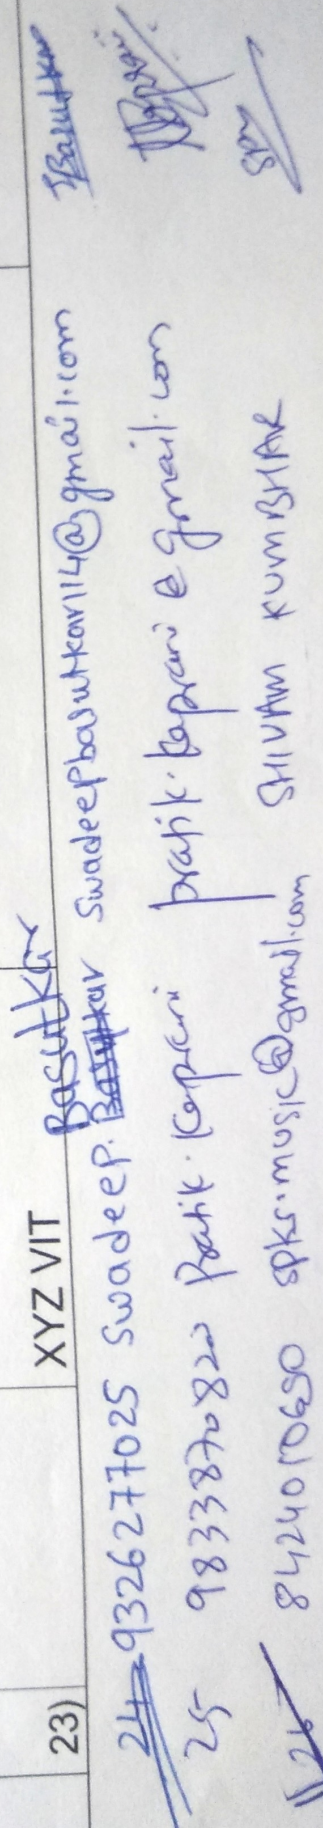 23) XYZ VIT
Basutkar
24 9326277025 Swadeep. swadeepbasutkar114@gmail.com Basutkar
25 9833870820 Pratik. Keprani pratik.keprani@gmail.com
26 8424010650 spks.music@gmail.com SHIVAM KUMBHAR